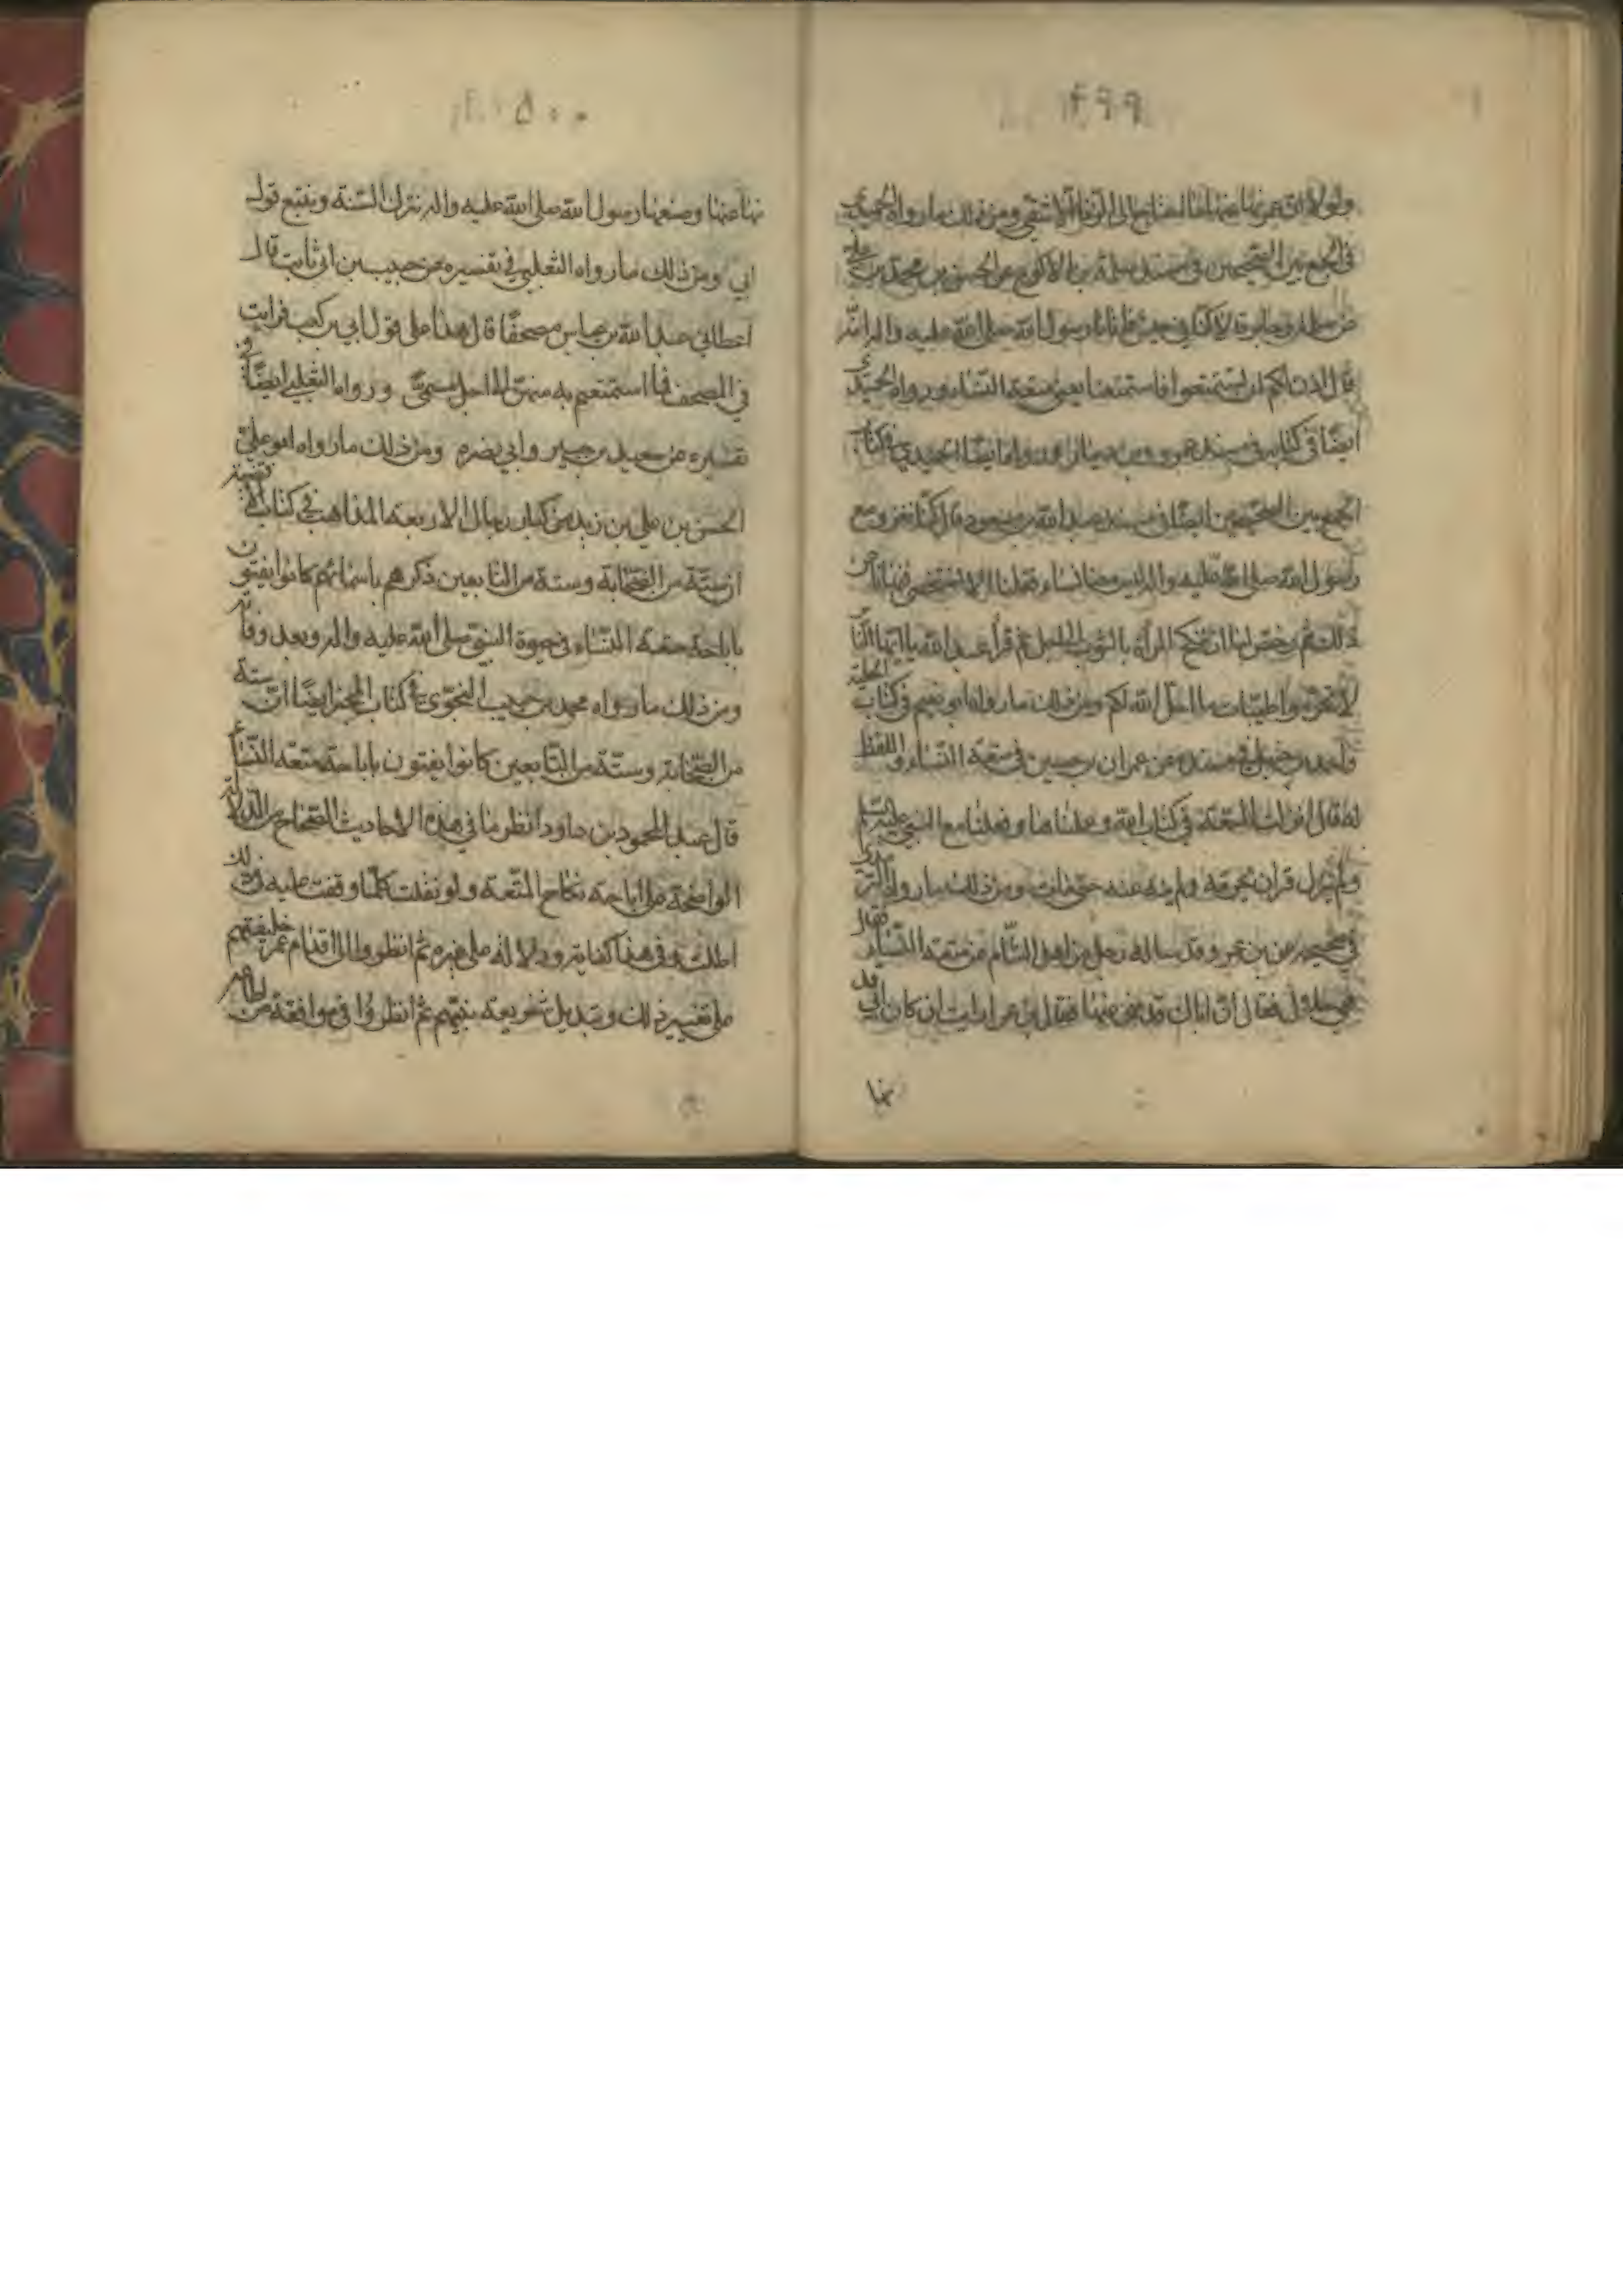 ۴۹۹
ولولا ان عمر نها عنها ما احتاج الى الزنا الا شقي ومن ذلك ما رواه الحميدي
في الجمع بين الصحيحين في مسند سلمة بن الاكوع عن الحسن بن محمد بن علي
عن سلمة وجابر قالا كنا في جيش فاتانا رسول الله صلى الله عليه واله
قال اذن لكم ان تستمتعوا فاستمتعنا يعني متعة النساء ورواه الحميدي
ايضا في كتابه في مسند عمرو بن دينار ايضا الحميدي في كتاب
الجمع بين الصحيحين ايضا في مسند عبد الله بن مسعود قال كنا نغزو مع
رسول الله صلى الله عليه واله ليس معنا نساء فقلنا الا نختصي فنهانا عن
ذلك ثم رخص لنا ان ننكح المراة بالثوب الى اجل ثم قرا عبد الله يا ايها الذ
لا تحرموا طيبات ما احل الله لكم ومن ذلك ما رواه ابو نعيم في كتاب الحلية
واحمد بن حنبل في مسنده عن عمران بن حصين في متعة النساء واللفظ
له قال انزلت المتعة في كتاب الله وعلمناها وفعلناها مع النبي عليه السلم
ولم ينزل قران بحرمته ولم ينه عنه حتى مات ومن ذلك ما رواه الترمذي
في صحيحه عن بن عمر وقد ساله رجل من اهل الشام عن متعة النساء فقال
هي حلال فقال ان اباك قد نهى عنها فقال ابن عمر ارايت ان كان ابي قد
نها
۵۰۰
نها عنها وصنعها رسول الله صلى الله عليه واله نترك السنة ونتبع قول
ابي ومن ذلك ما رواه الثعلبي في تفسيره عن حبيب بن ابي ثابت قال
اعطاني عبد الله بن عباس مصحفا قال هذا على قول ابي بن كعب فرايت
في المصحف فما استمتعتم به منهن الى اجل مسمى ورواه الثعلبي ايضا في
تفسيره عن سعيد بن جبير وابي نضرة ومن ذلك ما رواه ابو علي
الحسن بن علي بن زيد من كبار رجال الاربعة المذاهب في كتاب الاقضية
ان ستة من الصحابة وستة من التابعين ذكرهم باسمائهم كانوا يفتون
باباحة متعة النساء في حيوة النبي صلى الله عليه واله وبعد وفاته
ومن ذلك ما رواه محمد بن حبيب النحوي في كتاب المحبر ايضا ان ستة
من الصحابة وستة من التابعين كانوا يفتون باباحة متعة النساء
قال عبد المحمود بن داود انظر ما في هذه الاحاديث الصحاح من الدلالة
الواضحة على اباحة نكاح المتعة ولو نقلت كلما وقفت عليه في ذلك
اطلت وفي هذا كفاية ودلالة على غيره ثم انظروا الى اقدام عمر خليفتهم
على تغيير ذلك وتبديل شريعة نبيهم ثم انظروا في موافقة من